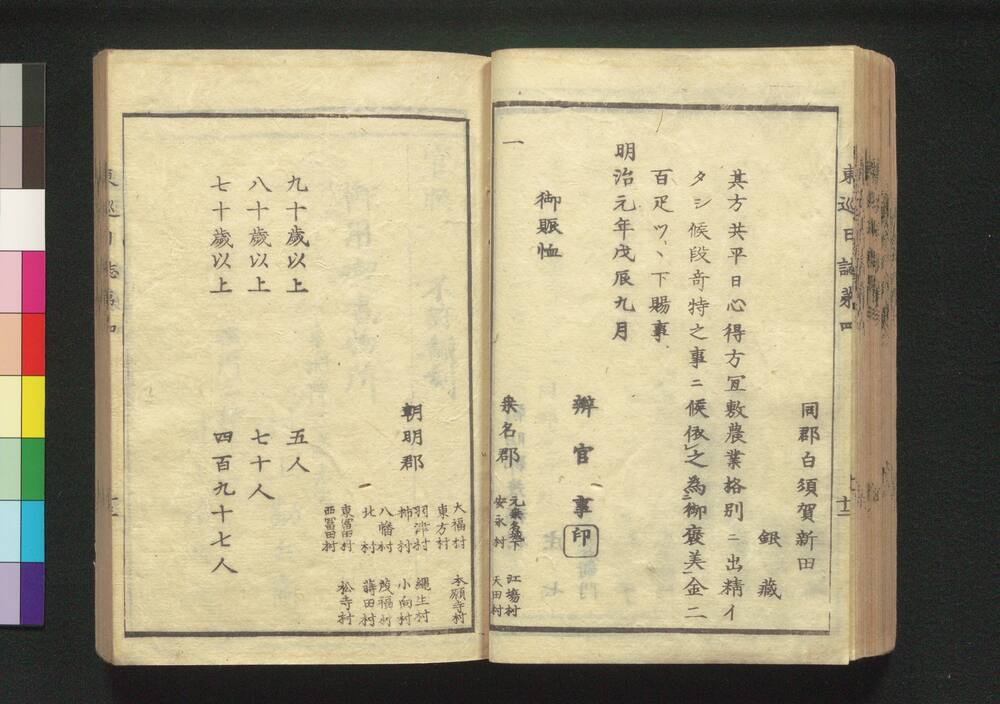 東巡日誌第四
十二
同郡白須賀新田
銀藏
其方共平日心得方冝敷農業格別ニ出精イ
タシ候段奇特之事ニ候依之為御褒美金二
百疋ツヽ下賜事
明治元年戊辰九月
辨官事印
一
御賑恤
桒名郡
元桒名城下 江塲村
安永村 天田村
大福村 本願寺村
東方村
朝明郡
羽津村 繩生村
柿村 小向村
八幡村
北村 蒔田村
東冨田村 松寺村
西冨田村
九十歲以上 五人
八十歲以上 七十人
七十歲以上 四百九十七人
東巡日誌第四